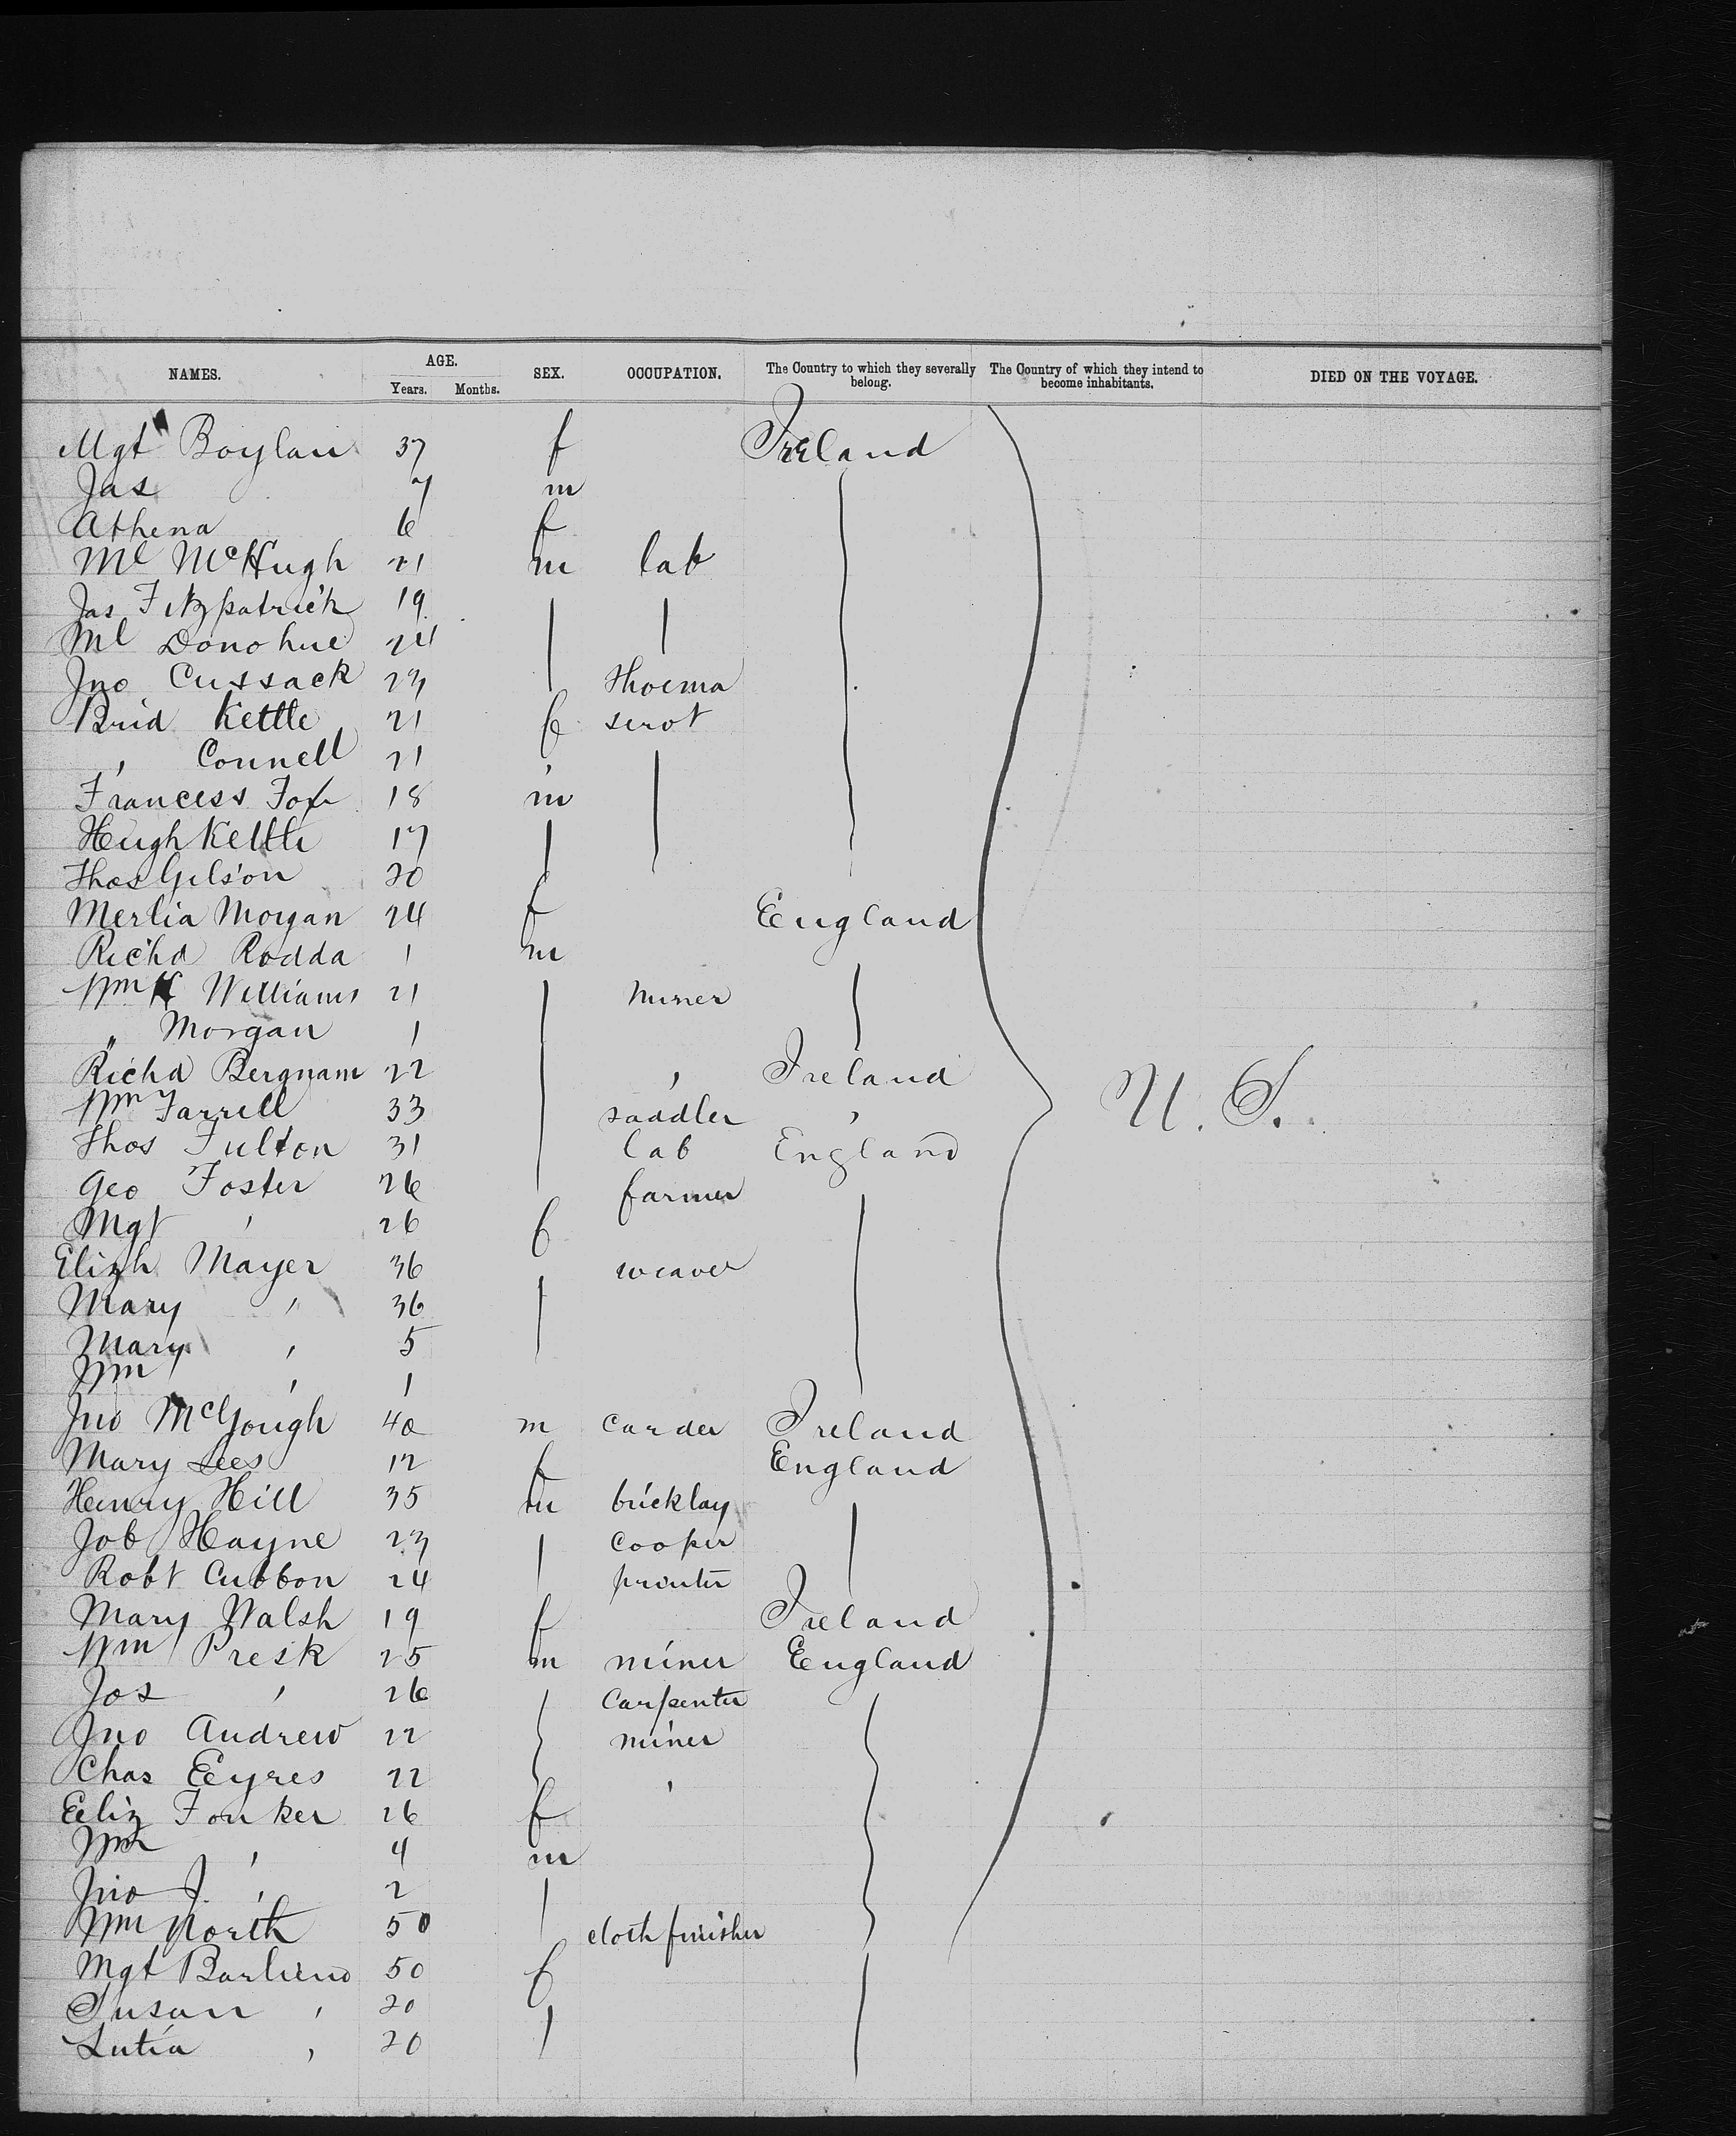 NAMES. AGE. Years. Months. SEX. OCCUPATION. The Country to which they severally belong. The Country of which they intend to become inhabitants. DIED ON THE VOYAGE.
Mgt Boylan 37 f Ireland
Jas 7 m
Athena 6 f
Ml McHugh 21 m lab
Jas Fitzpatrick 19
Ml Donohue 24
Jno Cussack 23 Shoema
Brid Kettle 21 f servt
" Connell 21 '
Francess Fox 18 m
Hugh Kettle 17
Thos Gilson 20
Merlia Morgan 24 f England
Richd Rodda 1 m
Wm H Williams 21 miner
" Morgan 1
Richd Bergnam 22 ' Ireland
Wm Farrell 33 saddler '
Thos Fulton 31 lab England
U. S.
Geo Foster 26 farmer
Mgt ' 26 f
Elizh Mayer 36 weaver
Mary ' 36
Mary ' 5
Wm ' 1
Jno McGough 40 m carder Ireland
Mary Lees 12 f England
Henry Hill 35 m bricklay
Job Hayne 23 cooper
Robt Cubbon 24 printer
Mary Walsh 19 f Ireland
Wm Presk 25 m miner England
Jos ' 26 Carpenter
Jno Andrew 22 miner
Chas Eyres 22 '
Eliz Fonker 26 f
Wm ' 4 m
Jno J. ' 2
Wm North 50 cloth finisher
Mgt 50 f
Susan ' 20
Lutia ' 20